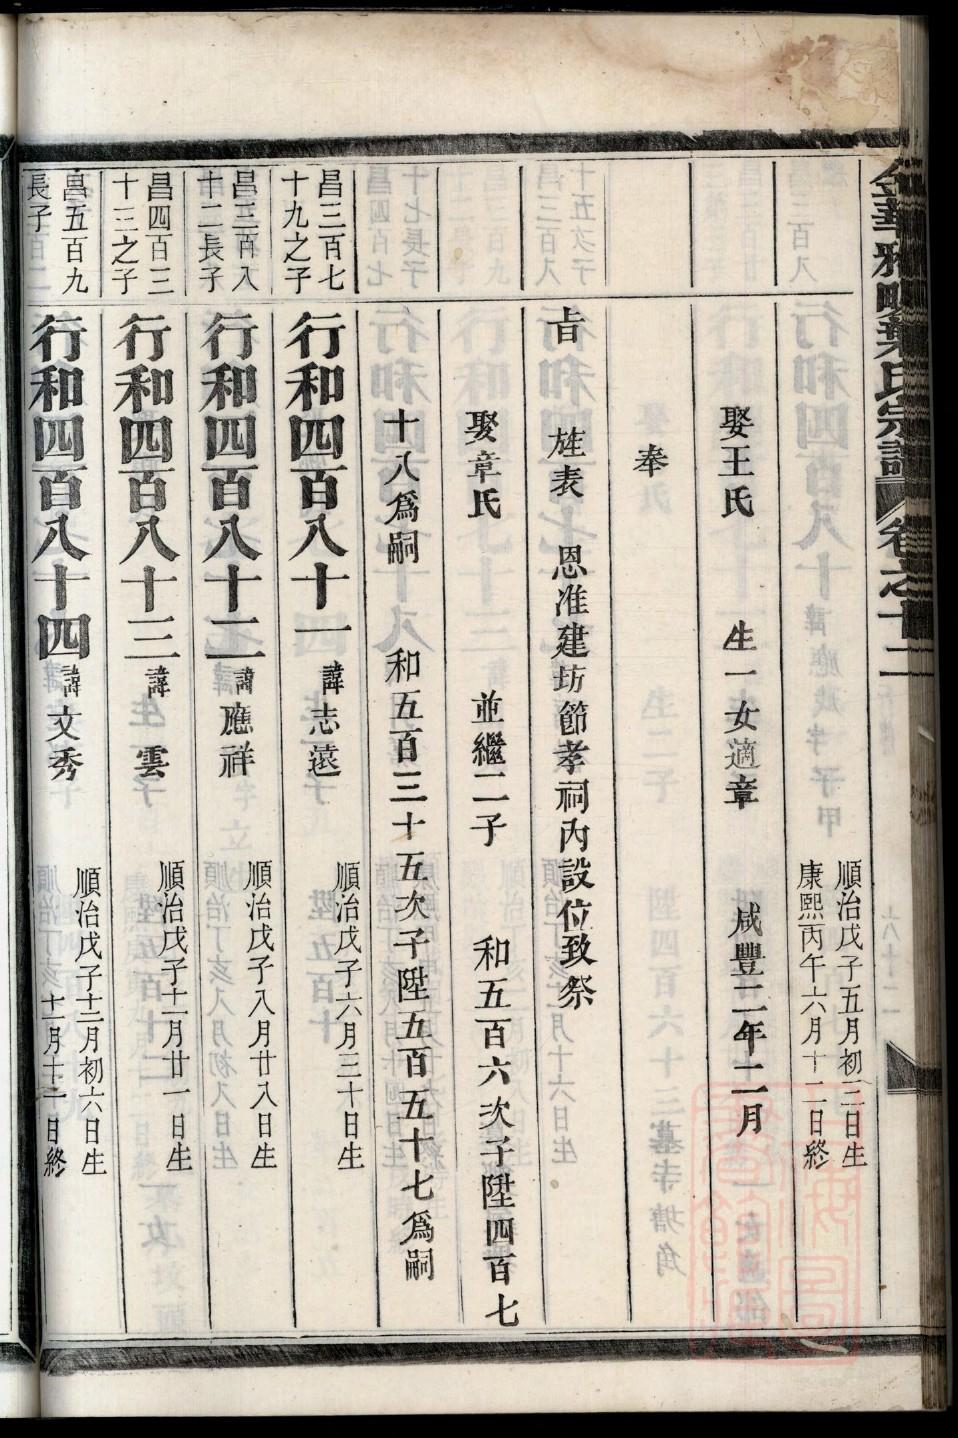 金華雅畈葉氏宗譜 卷之十二
順治戊子五月初三日生
康熙丙午六月十二日終
娶王氏 生一女適章 咸豐二年二月
奉
旨 旌表 恩准建坊節孝祠內設位致祭
娶章氏 並繼二子 和五百六次子陞四百七
十八爲嗣 和五百三十五次子陞五百五十七爲嗣
昌三百七
十九之子
行和四百八十一 諱志遠 順治戊子六月三十日生
昌三百八
十二長子
行和四百八十二 諱應祥 順治戊子八月廿八日生
昌四百三
十三之子
行和四百八十三 諱雲 順治戊子十一月廿一日生
昌五百九
長子
行和四百八十四 諱文秀 順治戊子十二月初六日生
十一月十二日終